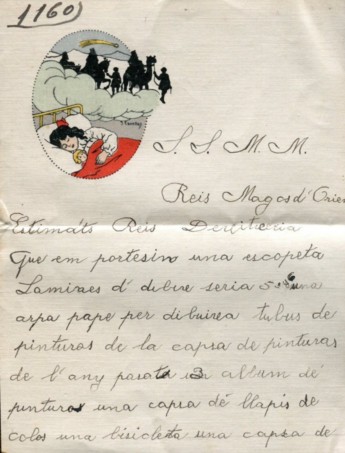 (1160)
S. S. M. M.
Reis Magos d'Orien
Estimáts Reis Desitjeria
Que em portesin una escopeta
Lamines d' dibuix seria 5 o 6 una
arpa pape per dibuixa tubus de
pinturas de la capsa de pinturas
de l'any pasat album dé
pinturas una capsa dé llapis de
colos una bisicleta una capsa de